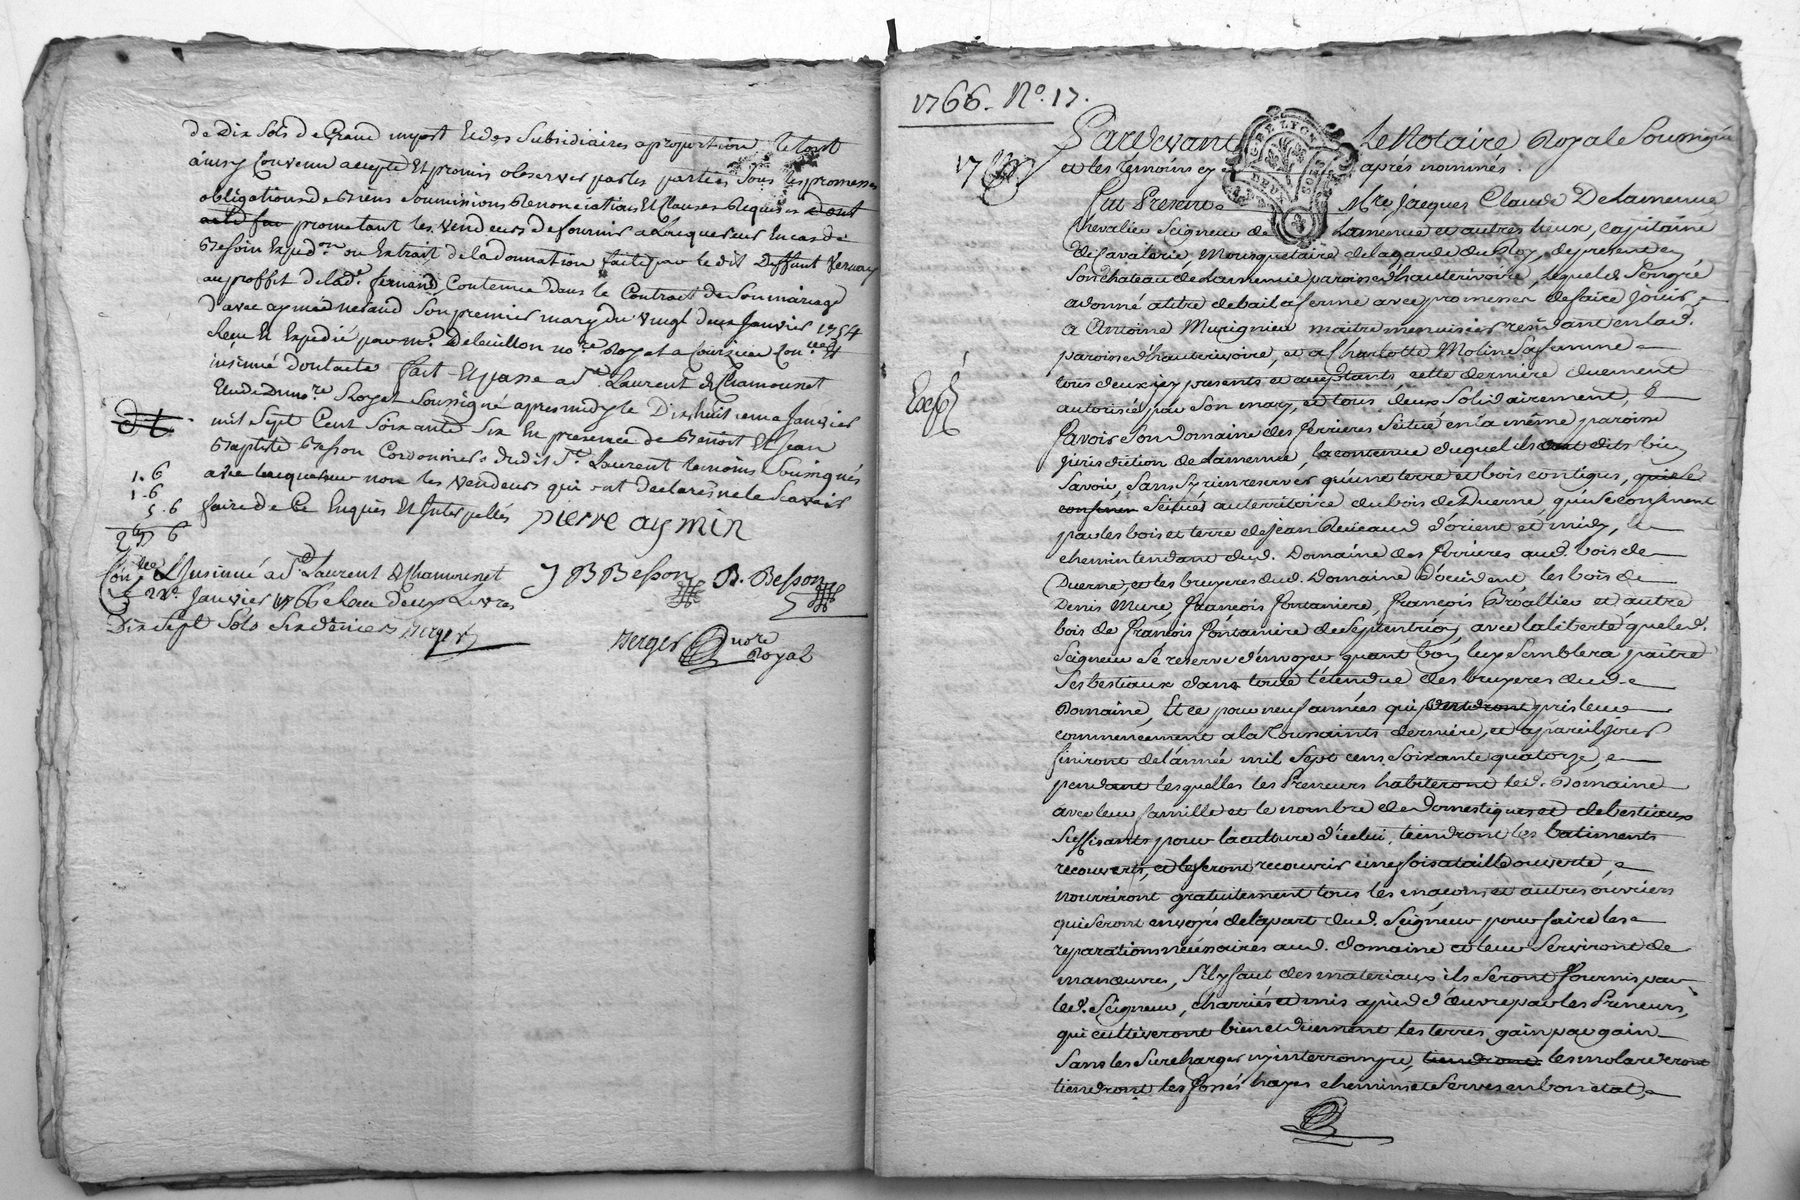 de Dix Sols de Grand import Et des Subsidiaires a proportion le tout
ainsy Convenu accepté Et promis observer par les parties Sous les promesses
obligations de Biens Soumissions Renonciations Et Clauses Requises dont
acte fait promettant les Vendeurs de fournir a L'acquereur En cas de
Besoin Expedon ou Extrait de la donnation faite par le dit Deffunt Vernay
au proffit de lad. fernand Contenue Dans le Contrat de Son mariage
d'avec aymé nesand Son premier mary du Vingt deux Janvier 1754
Receu Et Expedié par me. Deleuillon nore. Royal a Coursieu
insinué d'outacte fait Et passé a St. Laurent de Chamousset
Etude Du nore. Royal Soussigné apres midy le Dix huitieme Janvier
mil Sept Cent Soixante Six En presence de Benoist Et Jean
Baptiste Besson Cordonniers dudit St. Laurent temoins Soussignés
avec lacquereur non les Vendeurs qui ont declaré ne le Scavoir
faire de Ce Enquis Et Interpellés pierre aymin
1. 6
1. 6
5. 6
J B Besson B. Besson
Conlé Et Insinué a St. Laurent de Chamousset
Le 22e. Janvier 1766 Receu deux Livres
Dix Sept Sols Six deniers Berger
Berger nore
Royal
1766. No. 17.
Pardevant Le Notaire Royal Soussigné
et les temoins cy aprés nommés.
Fut Present Mre. Jacques Claude De Lamenue
Chevalier Seigneur de Lamenue et autres lieux, capitaine
de Cavalerie Mousquetaire de la garde du Roy, de present en
Son chateau de Lamenue paroisse d'hauterivoire, lequel de Son gré
a donné a titre de bail a ferme avec promesse de faire jouir
a Antoine Murignieu maitre menuisier residant en lad.
paroisse d'hauterivoire, et a Charlotte Molin Sa femme
tous deux icy presents et acceptants cette derniere duement
autorisée par Son mary, et tous deux Solidairement,
Expé
Savoir Son Domaine des ferrieres Scitué en la même paroisse
jurisdiction de Lamenue, la contenue duquel ils ont dits bien
Savoir, Sans Sy rien reserver qu'une terre et bois contigus, qui Se
confinen Scitués au territoire du bois de Duerne, qui Se confinent
par les bois et terre de Jean Reveaud d'orient et midy, le
chemin tendant dud. Domaine des ferrieres aud. bois de
Duerne, et les bruyeres dud. Domaine d'occident les bois de
Denis Mure, François Fontaniere, François Broallier et autre
bois de François Fontaniere de Septentrion, avec la liberté que led.
Seigneur Se reserve d'envoyer quant bon luy Semblera paître
Ses bestiaux dans toute l'étendue des bruyeres dud.
Domaine, Et ce pour neuf années qui prendront pris leur
commencement a la Toussaints derniere, et a pareil jour
finiront de l'année mil Sept cens Soixante quatorze,
pendant lesquelles les Preneurs habiteront led. Domaine
avec leur famille et le nombre de domestiques et de bestiaux
Suffisants pour la culture d'icelui, tiendront les batiments
recouverts, et les feront recouvrir une fois a taille ouverte,
nourriront gratuitement tous les maçons et autres ouvriers
qui Seront envoyés de la part dud. Seigneur pour faire les
reparations necessaires aud. domaine et leur Serviront de
manœuvres, S'il y faut des materiaux ils Seront fournis par
led. Seigneur, charriés et mis a pied d'œuvre par les Preneurs,
qui cultiveront bien et duement les terres, gain par gain
Sans les Surcharger ny interrompre, tiendront les
tiendront les fossés hayes chemins et Serves en bon etat,